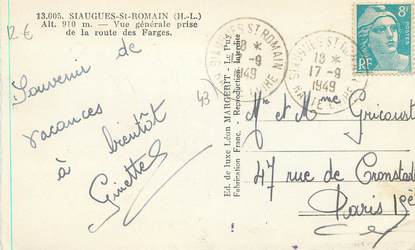 13.005. SIAUGUES-St-ROMAIN (H.-L.)
Alt. 910 m. — Vue générale prise
de la route des Farges.
12 €
Souvenir de
vacances
à bientôt
Ginette
43
Ed. de luxe Léon MARGERIT - Le Puy
Fabrication Franç. Reproduction interdite
SIAUGUES ST ROMAIN
18 *
17-9
1949
HAUTE LOIRE
SIAUGUES ST ROMAIN
18 *
17-9
1949
HAUTE LOIRE
8F
RF
Mr et Mme Gricourt
47 rue de Cronstadt
Paris 15e